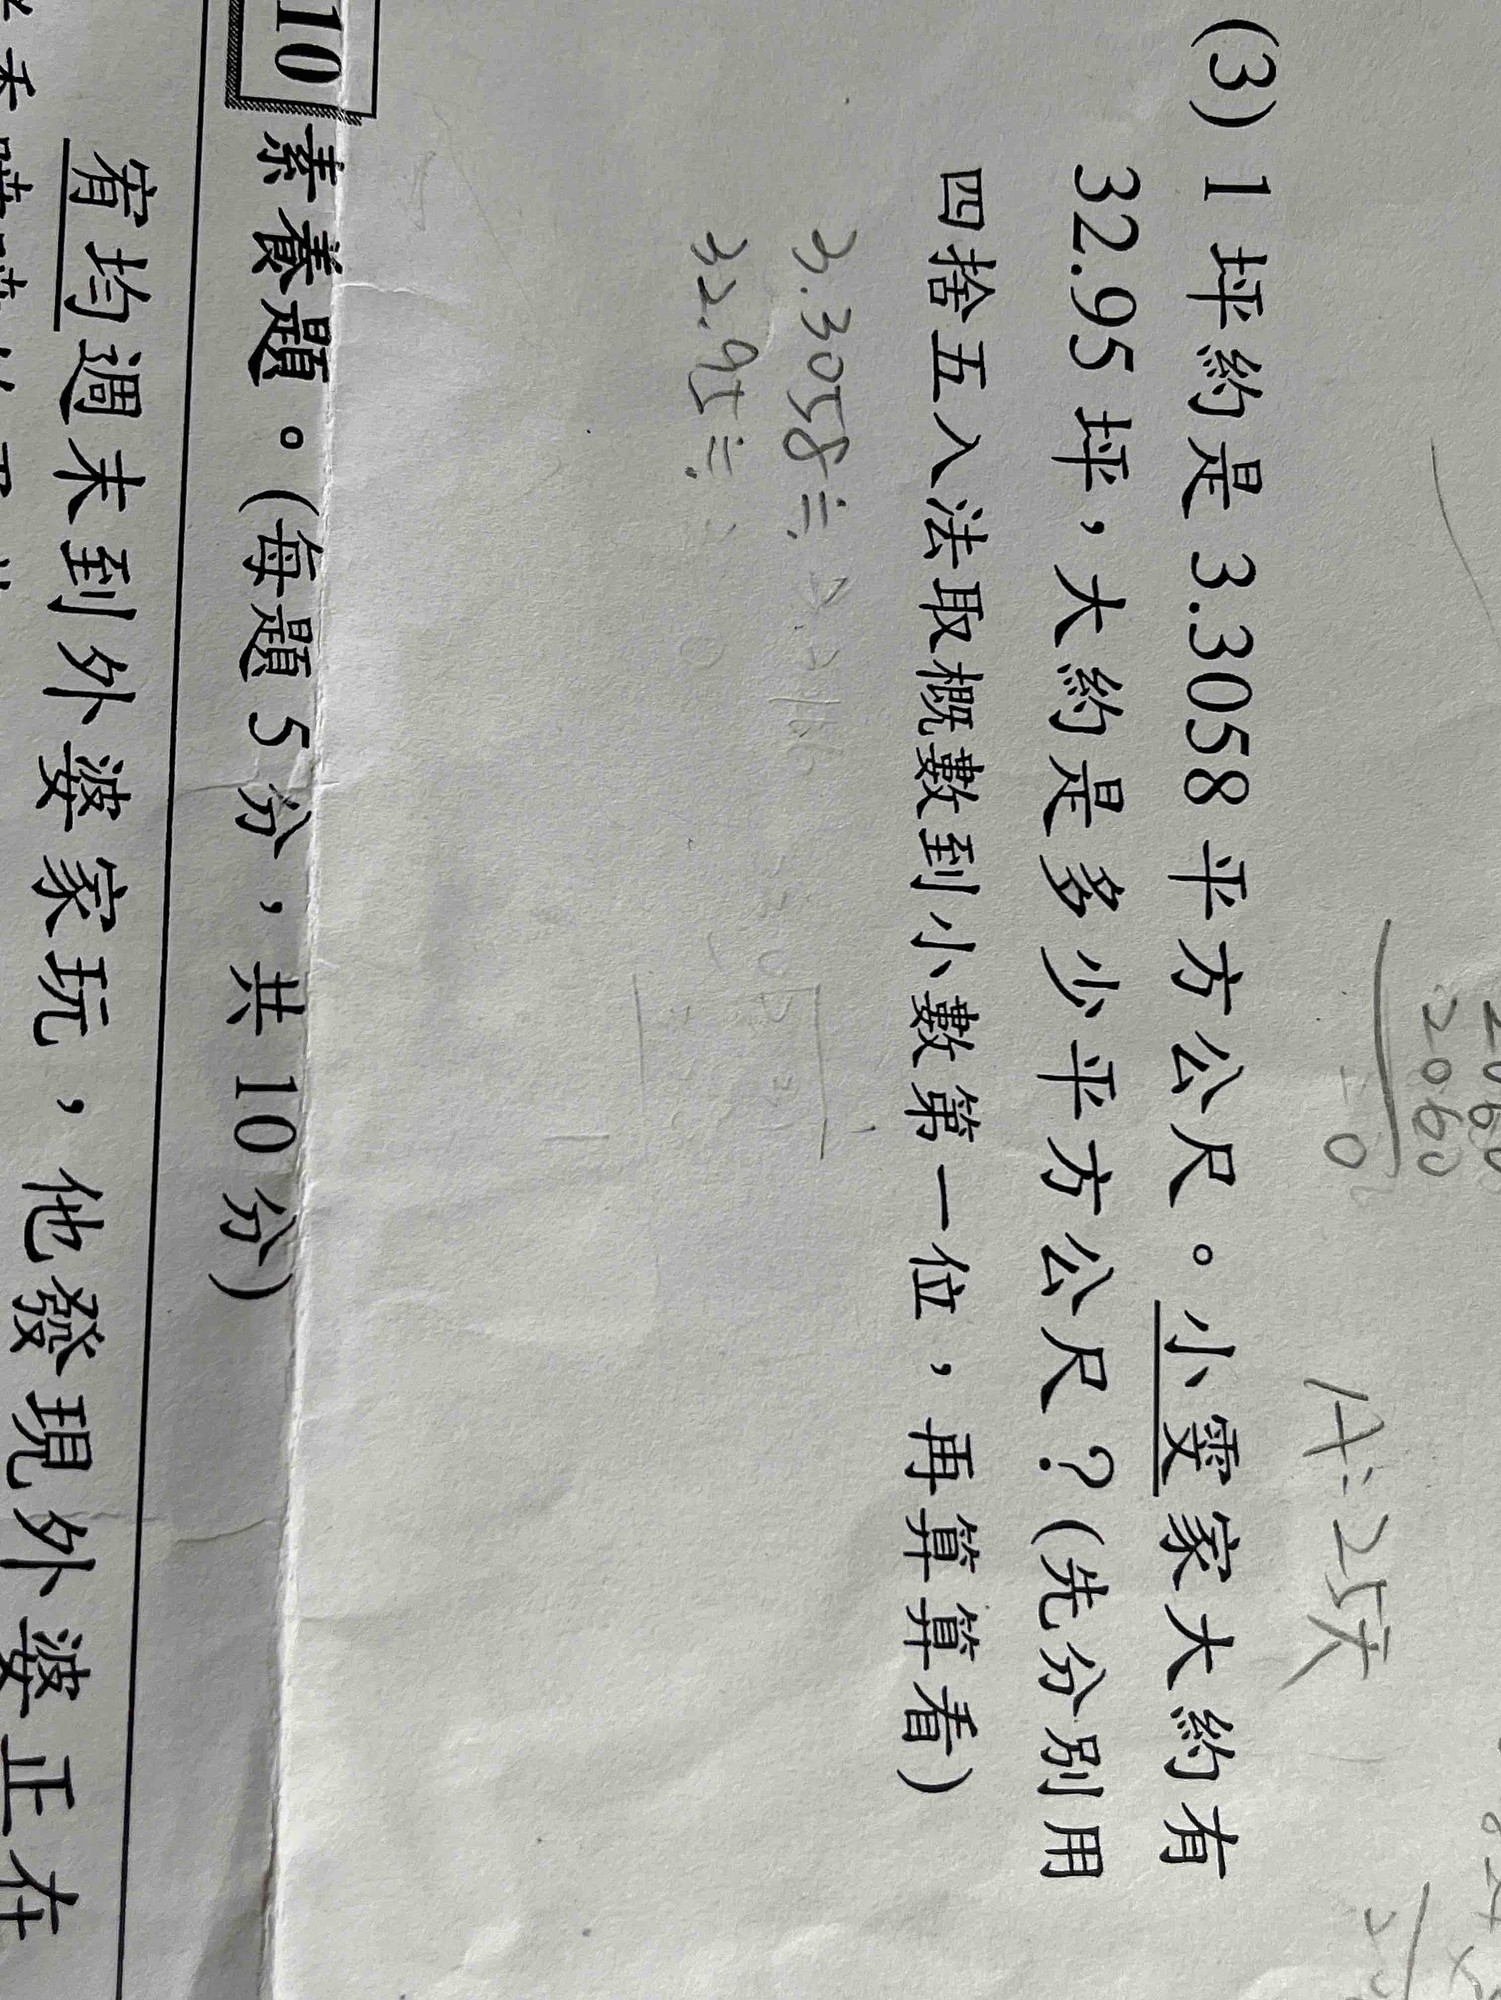 2060
0
A:25天
(3) 1坪約是3.3058平方公尺。小雯家大約有
32.95坪，大約是多少平方公尺？(先分別用
四捨五入法取概數到小數第一位，再算算看)
3.3058≒
32.95≒
10 素養題。(每題5分，共10分)
宥均週末到外婆家玩，他發現外婆正在